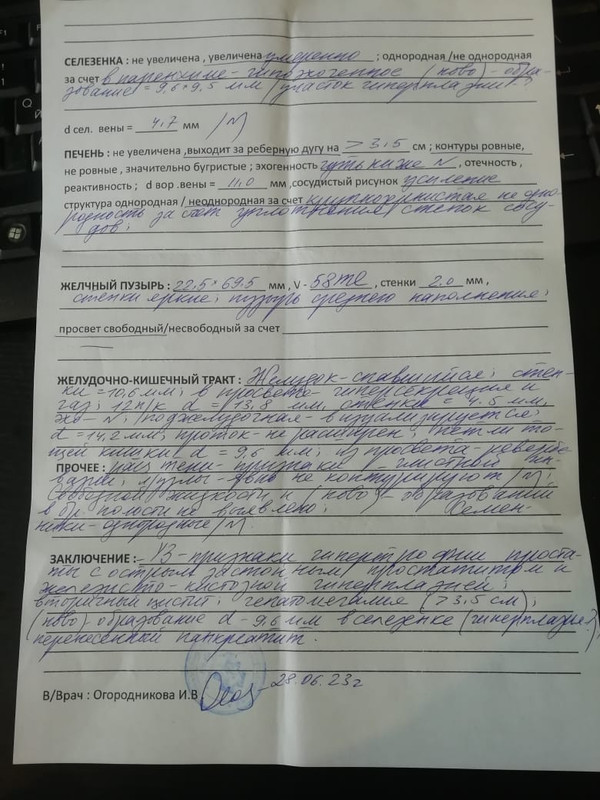 СЕЛЕЗЕНКА : не увеличена , увеличена умеренно ; однородная /не однородная
за счет в паренхиме - гипоэхогенное (ново) - обра-
зование = 9,6*9,5 мм (участок гиперплазии?)
d сел. вены = 4,7 мм /N
ПЕЧЕНЬ : не увеличена ,выходит за реберную дугу на > 3,5 см ; контуры ровные,
не ровные , значительно бугристые ; эхогенность чуть ниже N , отечность ,
реактивность ; d вор .вены = 11,0 мм ,сосудистый рисунок усиление
структура однородная / неоднородная за счет крупнозернистая не одно-
родность за счет уплотнения стенок сосу-
дов.
ЖЕЛЧНЫЙ ПУЗЫРЬ : 22,5*69,5 мм , V - 58 мл , стенки 2,0 мм ,
стенки яркие; пузырь среднего наполнения;
просвет свободный/несвободный за счет
ЖЕЛУДОЧНО-КИШЕЧНЫЙ ТРАКТ : Желудок - спавшийся; стен-
ки = 10,6 мм; в просвете гиперсекреция и
газ; 12 п/к d = 13,8 мм, стенки = 4,5 мм,
эхо - N; поджелудочная - визуализируется;
d = 14,2 мм; проток - не расширен; петли то-
щей кишки d = 9,6 мм; из просвета ревербе-
ПРОЧЕЕ : рая тени - признаки глистной ин-
вазии; л/узлы - явно не контурируют /N/;
свободной жидкости и (ново) - образований
в бр. полости не выявлено; Семен-
ники - однородные /N.
ЗАКЛЮЧЕНИЕ :- УЗ - признаки гипертрофии проста-
ты с острым застойным простатитом и
железисто - кистозной гиперплазией;
вторичный цистит; гепатомегалия (> 3,5 см);
(ново) - образование d - 9,6 мм в селезенке (гиперплазия?)
перенесенный панкреатит.
В/Врач : Огородникова И.В. 28.06.23г